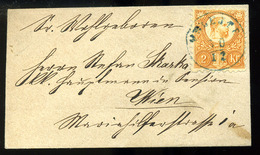 Sr. Wohlgeboren
Herrn Stefan
k.k. Hauptmann in Pension
Wien
Mariahilferstrasse 1a
2 Kr